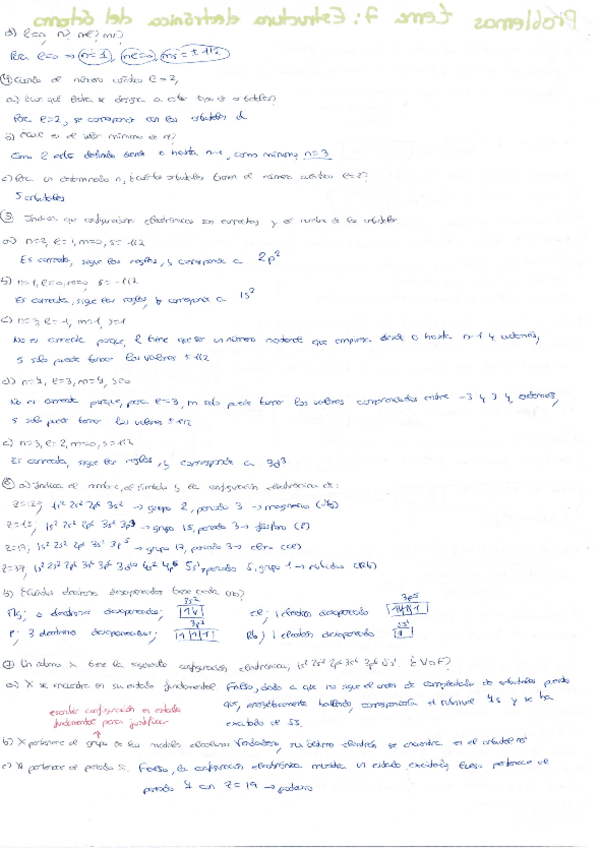 Problemas tema 7: Estructura electrónica del átomo
d) l=0, n? ml? ms?
Para l=0 → n=1, ml=0, ms=±1/2
④ Cuando el número cuántico l=2,
a) ¿Con qué letra se designa a este tipo de orbitales?
Para l=2, se corresponde con los orbitales d
b) ¿Cuál es el valor mínimo de n?
Como l está definido desde 0 hasta n-1, como mínimo n=3
c) Para un determinado n, ¿cuántos orbitales tienen el número cuántico l=2?
5 orbitales
⑤ Indicar qué configuraciones electrónicas son correctas y el nombre de los orbitales
a) n=2, l=1, m=0, s=1/2
Es correcta, sigue las reglas, y corresponde a 2p²
b) n=1, l=0, m=0, s=-1/2
Es correcta, sigue las reglas, y corresponde a 1s²
c) n=3, l=-1, m=1, s=1
No es correcta porque, l tiene que ser un número que empieza desde 0 hasta n-1 y además,
s solo puede tomar los valores ±1/2
d) l=3, s=0
No es correcta porque, para l=3, m solo puede tomar los valores comprendidos entre -3 y 3 y, además,
s solo puede tomar los valores ±1/2
e) n=3, l=2, m=0, s=1/2
Es correcta, sigue las reglas, y corresponde a 3d³
⑥ a) Indica el nombre, el símbolo y la configuración electrónica de:
Z=12; 1s² 2s² 2p⁶ 3s² → grupo 2, periodo 3 → magnesio (Mg)
Z=15; 1s² 2s² 2p⁶ 3s² 3p³ → grupo 15, periodo 3 → fósforo (P)
Z=17; 1s² 2s² 2p⁶ 3s² 3p⁵ → grupo 17, periodo 3 → cloro (Cl)
Z=37; 1s² 2s² 2p⁶ 3s² 3p⁶ 3d¹⁰ 4s² 4p⁶ 5s¹ → periodo 5, grupo 1 → rubidio (Rb)
b) ¿Cuántos electrones desapareados tiene cada uno?
Mg; 0 electrones desapareados; 3s² Cl; 1 electrón desapareado 3p⁵
P; 3 electrones desapareados; 3p³ Rb; 1 electrón desapareado 5s¹
⑦ Un átomo X tiene la siguiente configuración electrónica, 1s² 2s² 2p⁶ 3s² 3p⁶ 5s¹. ¿V o F?
a) X se encuentra en su estado fundamental. Falso, dado a que no sigue el orden de de orbitales puesto
que, energéticamente hablando, correspondería el subnivel 4s y se ha
excitado al 5s.
escribir configuración en estado
fundamental para justificar
b) X pertenece al grupo de los metales alcalinos. Verdadero, su último electrón se encuentra en el orbital
c) X pertenece al periodo 5. Falso, la configuración electrónica muestra un estado excitado, luego pertenece al
periodo 4 con Z=19 → potasio